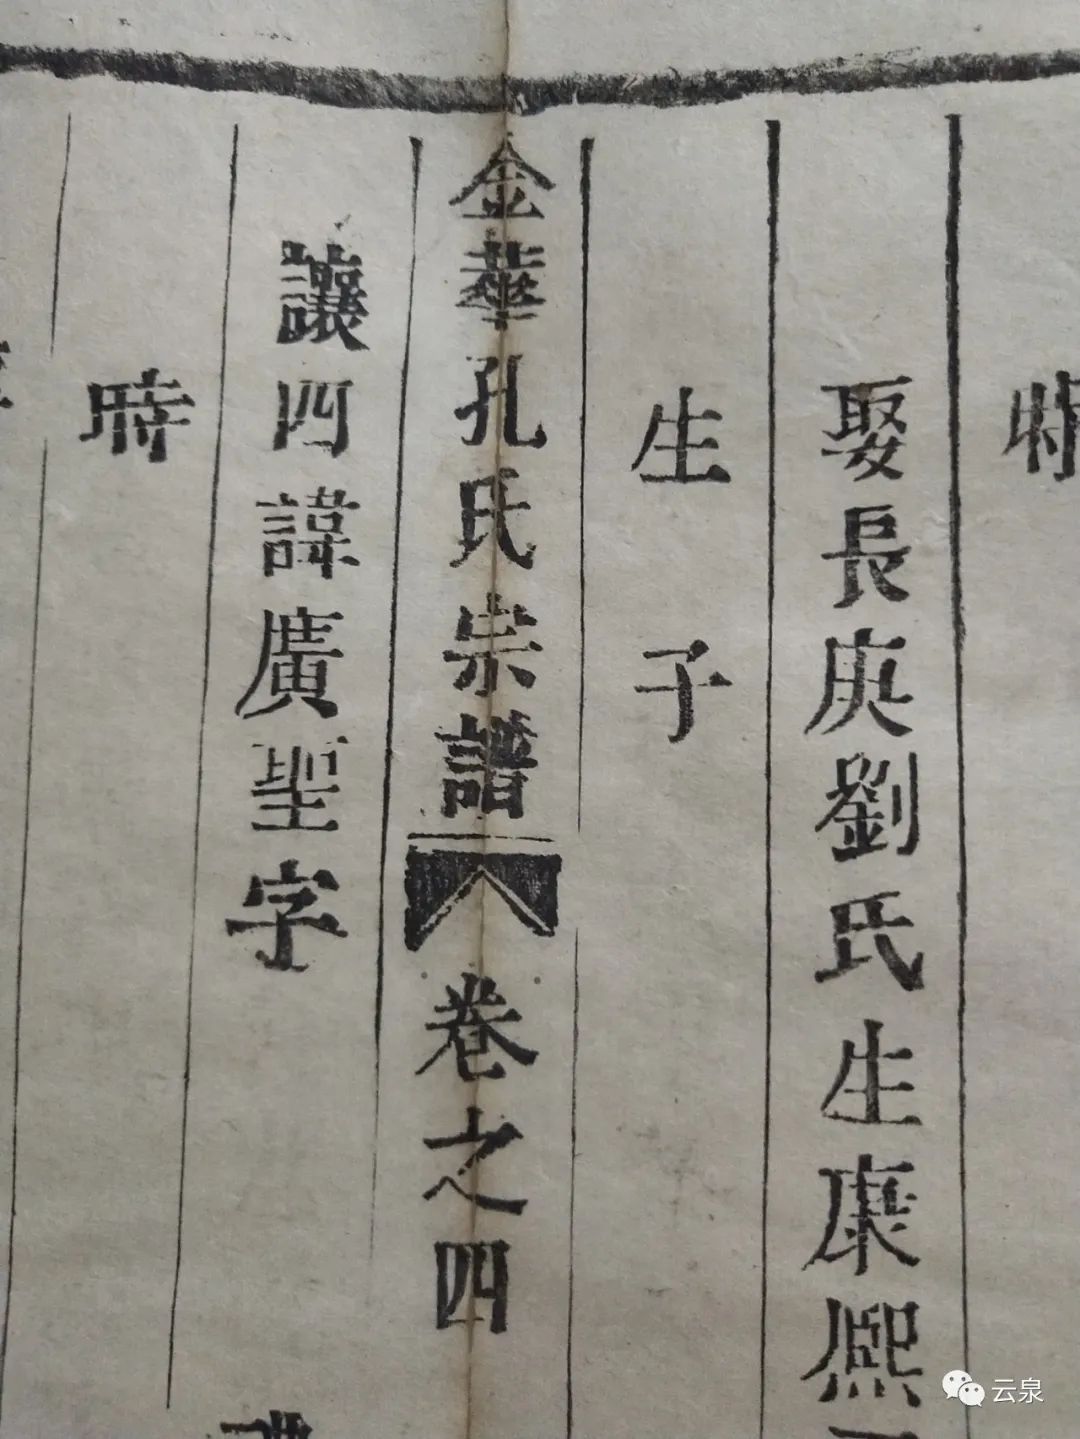 時
娶長庚劉氏生康熙
生子
金華孔氏宗譜 卷之四
讓四諱廣聖字
時
云泉